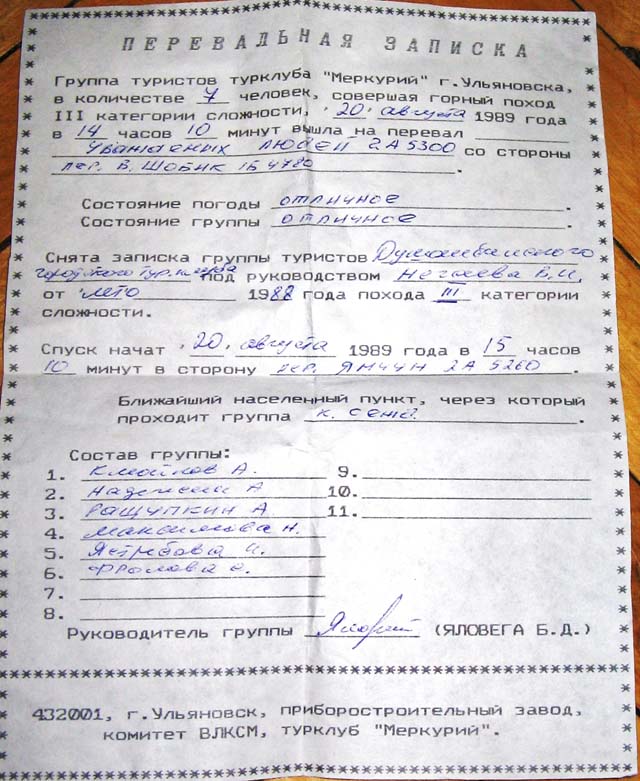 ПЕРЕВАЛЬНАЯ ЗАПИСКА
Группа туристов турклуба "Меркурий" г.Ульяновска,
в количестве 7 человек, совершая горный поход
III категории сложности, "20" августа 1989 года
в 14 часов 10 минут вышла на перевал
Уважаемых людей 2А 5300 со стороны
пер. В. Шобик 1Б 4780.
Состояние погоды отличное.
Состояние группы отличное.
Снята записка группы туристов Душанбинского
городского тур.клуба под руководством Нечаева В.И.
от лето 1988 года похода III категории
сложности.
Спуск начат "20" августа 1989 года в 15 часов
10 минут в сторону пер. Янчин 2А 5260.
Ближайший населенный пункт, через который
проходит группа к. Сенд.
Состав группы:
1. А. 9.
2. А 10.
3. Ращупкин А 11.
4. Максимова Н.
5. Ястребова И.
6. Фролова О.
7.
8.
Руководитель группы (ЯЛОВЕГА Б.Д.)
432001, г.Ульяновск, приборостроительный завод,
комитет ВЛКСМ, турклуб "Меркурий".